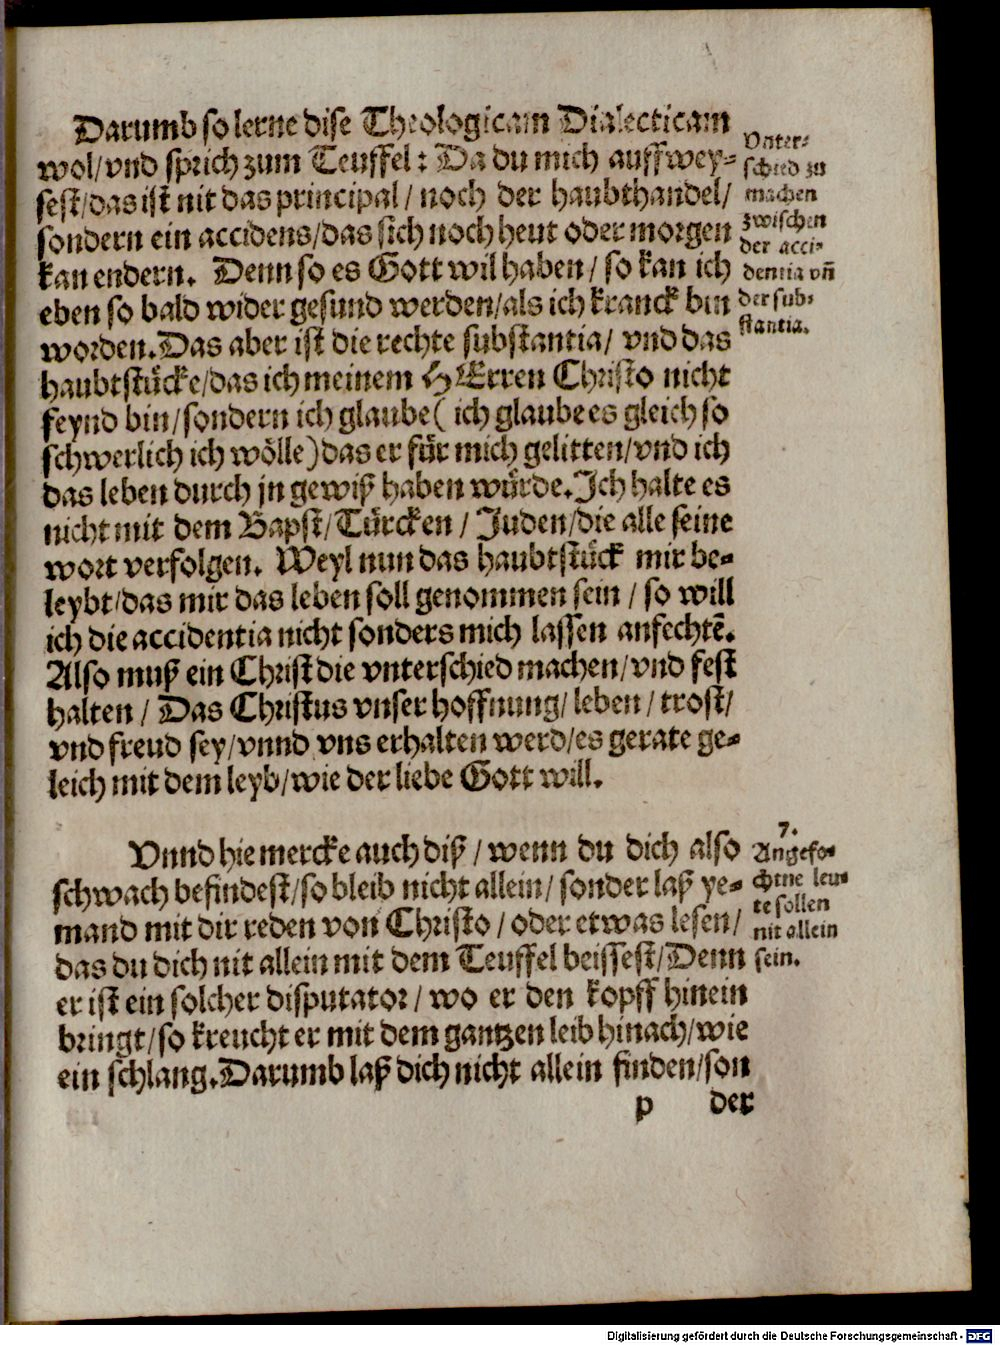 Darumb so lerne dise Theologicam Dialecticam
wol/vnd sprich zum Teuffel: Da du mich auffwey-
sest/das ist nit das principal/ noch der haubthandel/
sondern ein accidens/das sich noch heut oder morgen
kan endern. Denn so es Gott wil haben/ so kan ich
eben so bald wider gesund werden/als ich kranck bin
worden. Das aber ist die rechte substantia/ vnd das
haubtstücke/das ich meinem HErren Christo nicht
feynd bin/sondern ich glaube( ich glaube es gleich so
schwerlich ich wölle)das er für mich gelitten/vnd ich
das leben durch jn gewiß haben würde. Ich halte es
nicht mit dem Bapst/Türcken/ Juden/die alle seine
wort verfolgen. Weyl nun das haubtstück mir be-
leybt/das mir das leben soll genommen sein/ so will
ich die accidentia nicht sonders mich lassen anfechtē.
Also muß ein Christ die vnterschied machen/vnd fest
halten/ Das Christus vnser hoffnung/ leben/ trost/
vnd freud sey/vnnd vns erhalten werd/es gerate ge-
leich mit dem leyb/wie der liebe Gott will.
Vnter-
schied zu
machen
zwischen
der acci-
dentia vñ
der sub-
stantia.
Vnnd hie mercke auch diß/ wenn du dich also
schwach befindest/so bleib nicht allein/ sonder laß ye-
mand mit dir reden von Christo/ oder etwas lesen/
das du dich nit allein mit dem Teuffel beissest/Denn
er ist ein solcher disputator/ wo er den kopff hinein
bringt/so kreucht er mit dem gantzen leib hinach/wie
ein schlang. Darumb laß dich nicht allein finden/son
7.
Angefo-
chtne leu-
te sollen
nit allein
sein.
p der
Digitalisierung gefördert durch die Deutsche Forschungsgemeinschaft - DFG